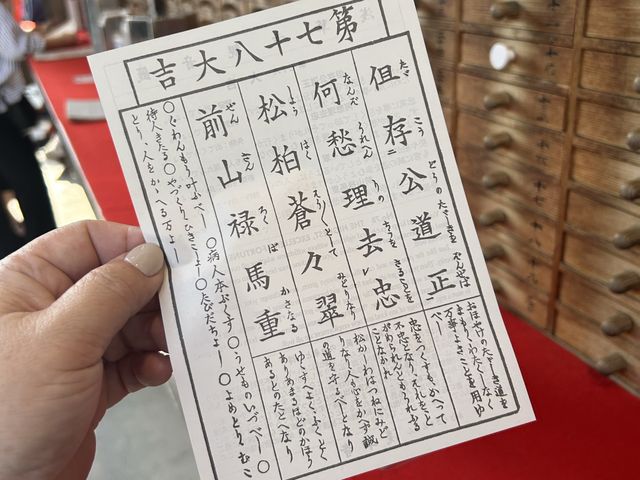 第七十八大吉
俱存公道正
たゞ こう どうの たゞしきを ぞんずれば
何愁理去忠
なんぞ うれへん りの ちうを さることを
松柏蒼々翠
しよう はく そう〳〵として みどりなり
前山禄馬重
ぜん さん ろく ば かさなる
おほやけのたゞしき道を
まもりわたくしなく
万事よきことを用ゆ
べし
忠をつくすもかへつて
不忠となりそれをと
がめられんともうれふる
ことなかれ
松かしわはつねにみど
りなり人も心をかへず誠
の道を守べしとなり
ゆくすへよくふくとく
ありあまるほどのかほう
あるとのたとへなり
○ぐわんもう叶ふべし○病人本ぷくす○うせものいづべし○
待人きたる○やづくりひさしよし○たびだちよし○よめとりむこ
とり、人をかゝへる万よし